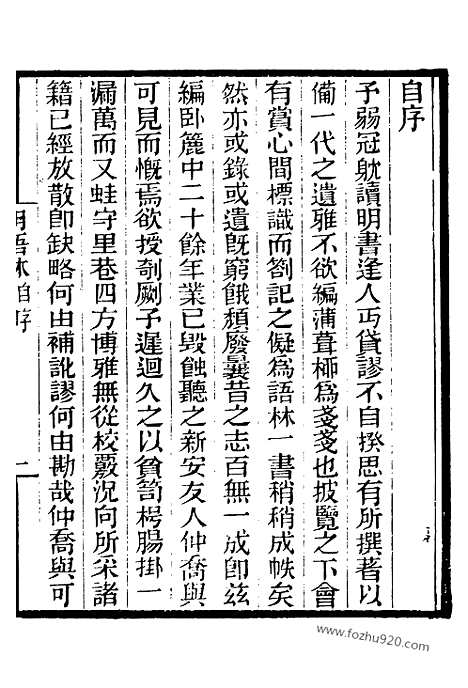 自序
予弱冠躭讀明書逢人丐貸謬不自揆思有所撰著以
備一代之遺雅不欲編蒲葺栁為戔戔也披覽之下會
有賞心間標識而劄記之儗為語林一書稍稍成帙矣
然亦或錄或遺旣窮餓頹廢曩昔之志百無一成卽茲
編臥簏中二十餘年業已毀蝕聽之新安友人仲喬與
可見而慨焉欲授剞劂予遲迴久之以貧笥枵腸掛一
漏萬而又蛙守里巷四方博雅無從校覈況向所采諸
籍已經放散卽缺略何由補訛謬何由勘哉仲喬與可
明語林自序
二
www.fozhu920.com